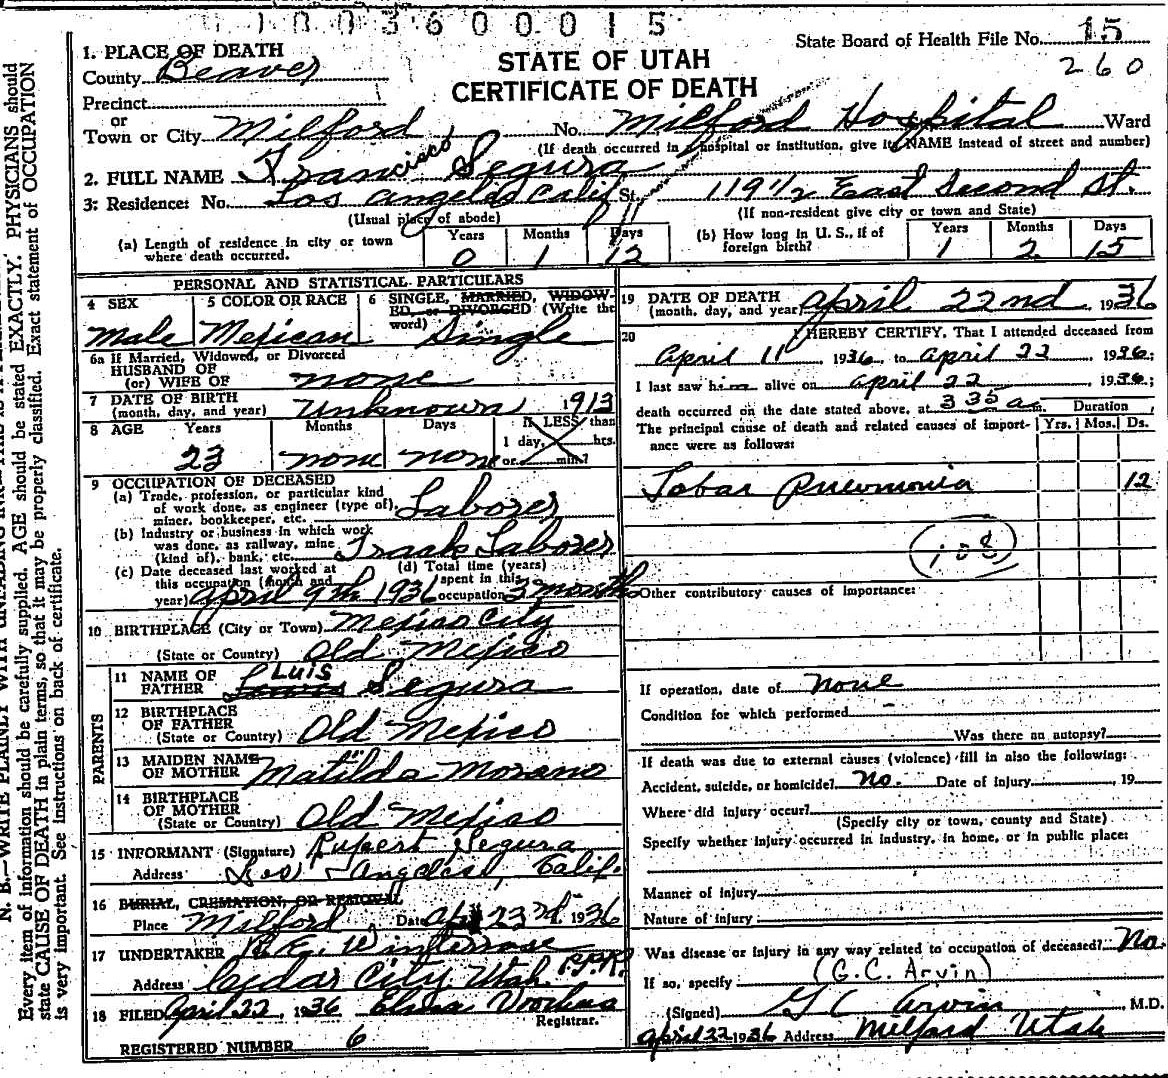 1 8 0 3 6 0 0 0 1 5
State Board of Health File No. 15
260
STATE OF UTAH
CERTIFICATE OF DEATH
1. PLACE OF DEATH
County Beaver
Precinct
or
Town or City Milford No. Milford Hospital Ward
(If death occurred in a hospital or institution, give its NAME instead of street and number)
2. FULL NAME Francisco Segura
3: Residence: No. Los Angeles Calif St. 119 1/2 East Second St.
(Usual place of abode) (If non-resident give city or town and State)
(a) Length of residence in city or town where death occurred. Years 0 Months 1 Days 12
(b) How long in U. S., if of foreign birth? Years 1 Months 2 Days 15
PERSONAL AND STATISTICAL PARTICULARS
4 SEX Male
5 COLOR OR RACE Mexican
6 SINGLE, MARRIED, WIDOWED, or DIVORCED (Write the word) Single
6a If Married, Widowed, or Divorced
HUSBAND OF
(or) WIFE OF none
7 DATE OF BIRTH
(month, day, and year) Unknown 1913
8 AGE Years 23 Months none Days none
If LESS than
1 day, hrs.
or min.?
9 OCCUPATION OF DECEASED
(a) Trade, profession, or particular kind
of work done, as engineer (type of),
miner, bookkeeper, etc. Laborer
(b) Industry or business in which work
was done, as railway, mine
(kind of), bank, etc. Track Laborer
(c) Date deceased last worked at
this occupation (month and
year) April 9th 1936
(d) Total time (years)
spent in this
occupation 3 months
10 BIRTHPLACE (City or Town) Mexico City
(State or Country) Old Mexico
PARENTS
11 NAME OF
FATHER Lewis LUIS Segura
12 BIRTHPLACE
OF FATHER
(State or Country) Old Mexico
13 MAIDEN NAME
OF MOTHER Matilda Morano
14 BIRTHPLACE
OF MOTHER
(State or Country) Old Mexico
15 INFORMANT (Signature) Rupert Segura
Address Los Angeles, Calif.
16 BURIAL, CREMATION, OR REMOVAL
Place Milford Date Apr 23rd 1936
17 UNDERTAKER Winterrose
Address Cedar City, Utah.
18 FILED April 22, 1936 Elma
Registrar.
REGISTERED NUMBER 6
19 DATE OF DEATH
(month, day, and year) April 22nd 1936
20 I HEREBY CERTIFY, That I attended deceased from
April 11 1936, to April 22, 1936;
I last saw him alive on April 22 1936;
death occurred on the date stated above, at 3 35 a m.
Duration
The principal cause of death and related causes of importance were as follows:
Yrs. Mos. Ds.
Lobar Pneumonia 12
108
Other contributory causes of importance:
If operation, date of none
Condition for which performed
Was there an autopsy?
If death was due to external causes (violence) fill in also the following:
Accident, suicide, or homicide? No. Date of injury, 19
Where did injury occur?
(Specify city or town, county and State)
Specify whether injury occurred in industry, in home, or in public place:
Manner of injury
Nature of injury
Was disease or injury in any way related to occupation of deceased? No.
If so, specify (G.C. Arvin)
(Signed) G C Arvin M.D.
April 22 1936 Address Milford Utah
Every item of information should be carefully supplied. AGE should be stated EXACTLY. PHYSICIANS should
state CAUSE OF DEATH in plain terms, so that it may be properly classified. Exact statement of OCCUPATION
is very important. See instructions on back of certificate.